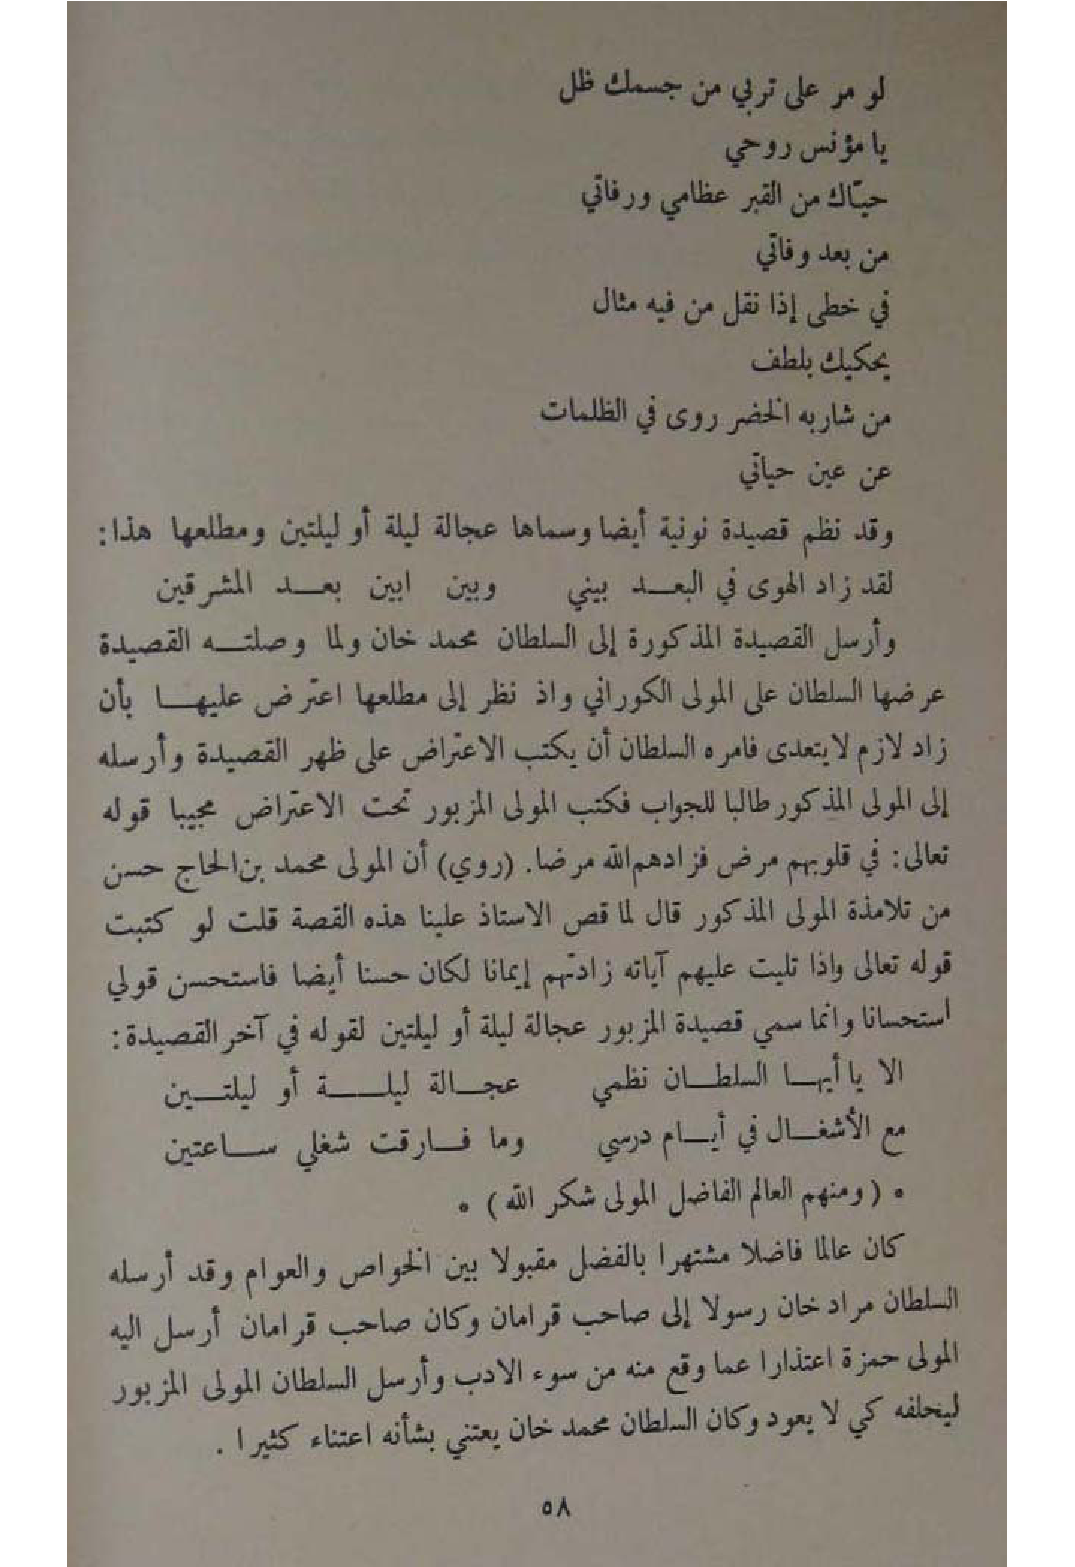 لو مر على تربي من جسمك ظل
يا مؤنس روحي
حيّاك من القبر عظامي ورفاتي
من بعد وفاتي
في خطى إذا نقل من فيه مثال
يحكيك بلطف
من شاربه الخضر روى في الظلمات
عن عين حياتي
وقد نظم قصيدة نونية أيضا وسماها عجالة ليلة أو ليلتين ومطلعها هذا:
لقد زاد الهوى في البعـد بيني وبين ابين بعـد المشرقين
وأرسل القصيدة المذكورة إلى السلطان محمد خان ولما وصلتـه القصيدة
عرضها السلطان على المولى الكوراني واذ نظر إلى مطلعها اعترض عليهـا بأن
زاد لازم لا يتعدى فامره السلطان أن يكتب الاعتراض على ظهر القصيدة وأرسله
إلى المولى المذكور طالبا للجواب فكتب المولى المزبور تحت الاعتراض مجيبا قوله
تعالى: في قلوبهم مرض فزادهم الله مرضا. (روي) أن المولى محمد بن الحاج حسن
من تلامذة المولى المذكور قال لما قص الاستاذ علينا هذه القصة قلت لو كتبت
قوله تعالى واذا تليت عليهم آياته زادتهم إيمانا لكان حسنا أيضا فاستحسن قولي
استحسانا وانما سمي قصيدة المزبور عجالة ليلة أو ليلتين لقوله في آخر القصيدة:
الا يا أيهـا السلطـان نظمي عجـالة ليلــة أو ليلتـين
مع الأشغـال في أيـام درسي وما فـارقت شغلي سـاعتين
* ( ومنهم العالم الفاضل المولى شكر الله ) *
كان عالما فاضلا مشتهرا بالفضل مقبولا بين الخواص والعوام وقد أرسله
السلطان مراد خان رسولا إلى صاحب قرامان وكان صاحب قرامان أرسل اليه
المولى حمزة اعتذارا عما وقع منه من سوء الادب وأرسل السلطان المولى المزبور
ليحلفه كي لا يعود وكان السلطان محمد خان يعتني بشأنه اعتناء كثيرا .
٥٨